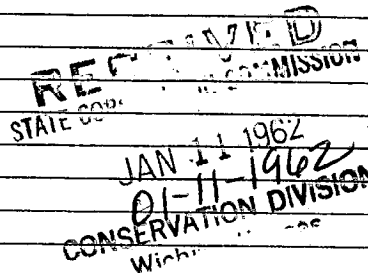 RECEIVED
STATE COMMISSION
JAN 11 1962
01-11-1962
CONSERVATION DIVISION